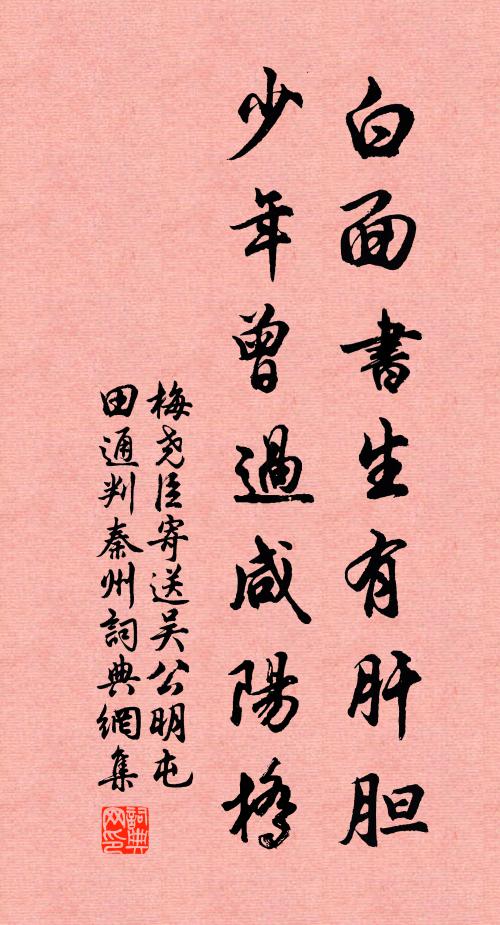 白面書生有肝胆
少年曾過咸陽橋
梅尧臣寄送吴公明屯
田通判秦州詞典網集
詞典
网印